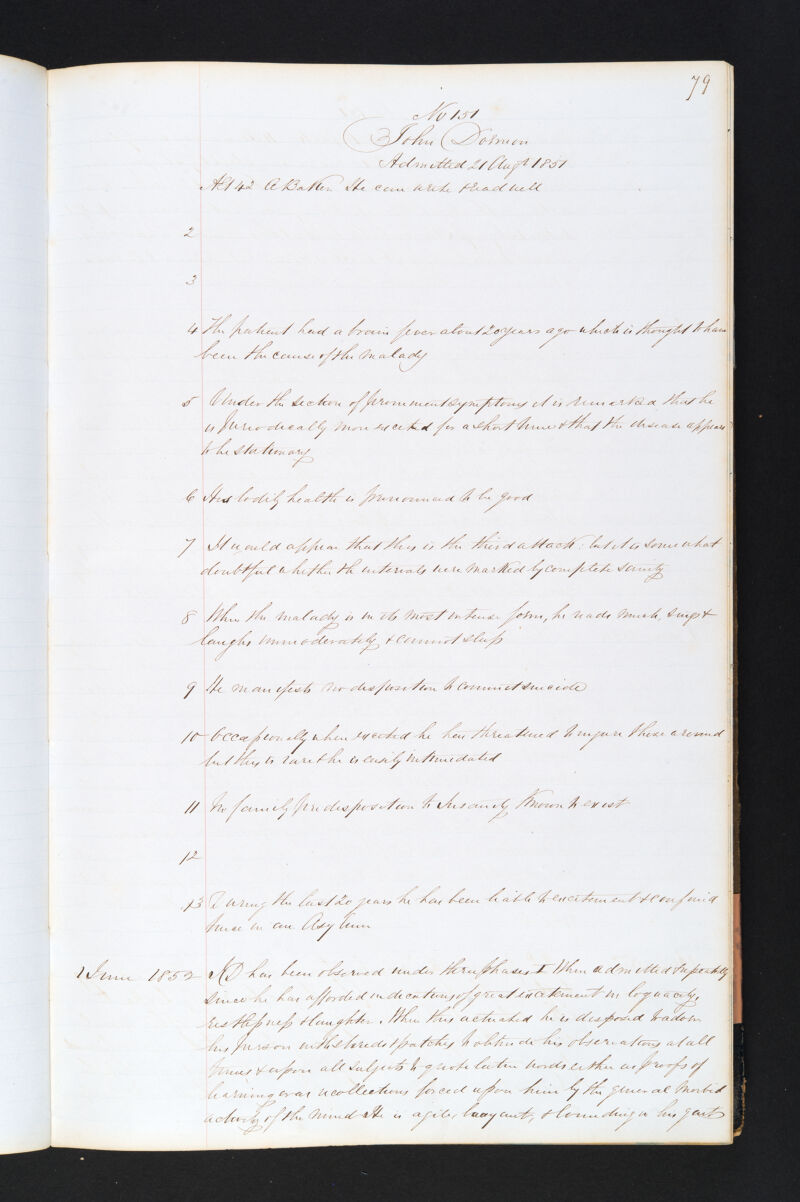 79
No 151
John Dorman
Admitted 21 Augt 1851
Aet 42 A Baker He can write & read well
2
3
4 The patient had a brain fever about 20 years ago which is thought to have
been the cause of the malady
5 Under the section of prominent symptoms it is remarked that he
is periodically more excited for a short time & that the disease appears
to be stationary
6 His bodily health is pronounced to be good
7 It would appear that this is the third attack: but it is somewhat
doubtful whether the intervals were marked by complete sanity
8 When the malady is in its most intense form, he reads much, sings &
laughs immoderately & cannot sleep
9 He manifests no disposition to commit suicide
10 Occasionally when excited he has threatened to injure those around
but this is rare & he is easily intimidated
11 No family predisposition to Insanity known to exist
12
13 During the last 20 years he has been liable to excitement & confined
twice in an Asylum
1 June 1852 JD has been observed under three phases I When admitted & repeatedly
since he has afforded indications of great excitement in loquacity,
restlessness & laughter. When thus actuated he is disposed to adorn
his person with shreds & patches to obtrude his observations at all
times & upon all subjects to quote latin words either as proofs of
learning or as recollections forced upon him by the general morbid
activity of the mind. He is agile, buoyant, & bounding in his gait